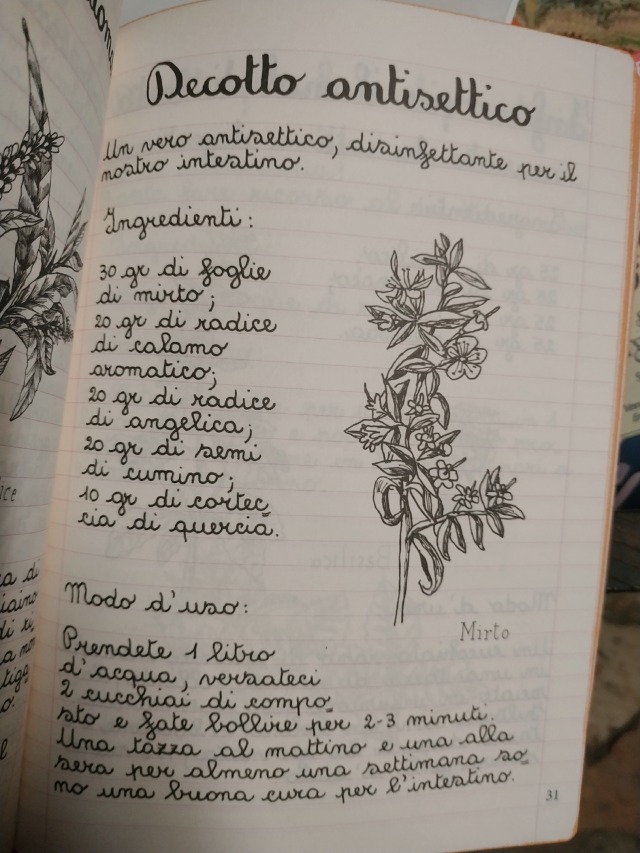 Decotto antisettico
Un vero antisettico, disinfettante per il
nostro intestino.
Ingredienti:
30 gr di foglie
di mirto;
20 gr di radice
di calamo
aromatico;
20 gr di radice
di angelica;
20 gr di semi
di cumino;
10 gr di cortec
cia di quercia.
Mirto
Modo d'uso:
Prendete 1 litro
d'acqua, versateci
2 cucchiai di compo
sto e fate bollire per 2-3 minuti.
Una tazza al mattino e una alla
sera per almeno una settimana so
no una buona cura per l'intestino.
31